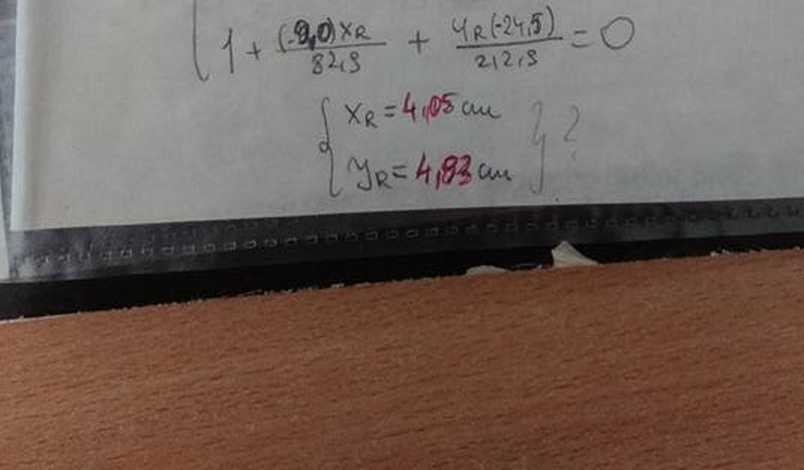 1 + (-9,0) xR / 82,9 + yR (-24,5) / 212,9 = 0
xR = 4,05 cm
yR = 4,83 cm } ?